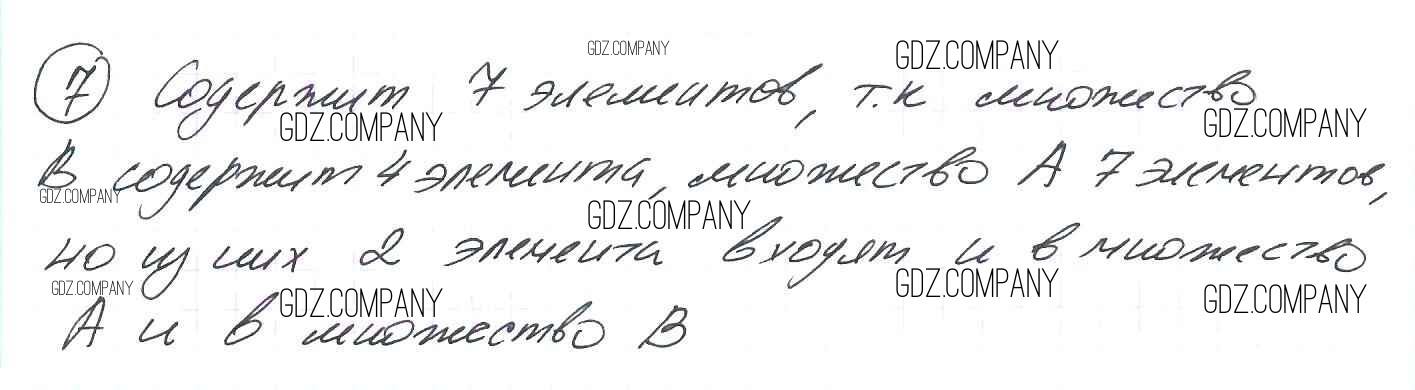 7 Содержит 7 элементов, т.к множество
В содержит 4 элемента, множество А 7 элементов,
но из них 2 элемента входят и в множество
А и в множество В
GDZ.COMPANY
GDZ.COMPANY
GDZ.COMPANY
GDZ.COMPANY
GDZ.COMPANY
GDZ.COMPANY
GDZ.COMPANY
GDZ.COMPANY
GDZ.COMPANY
GDZ.COMPANY